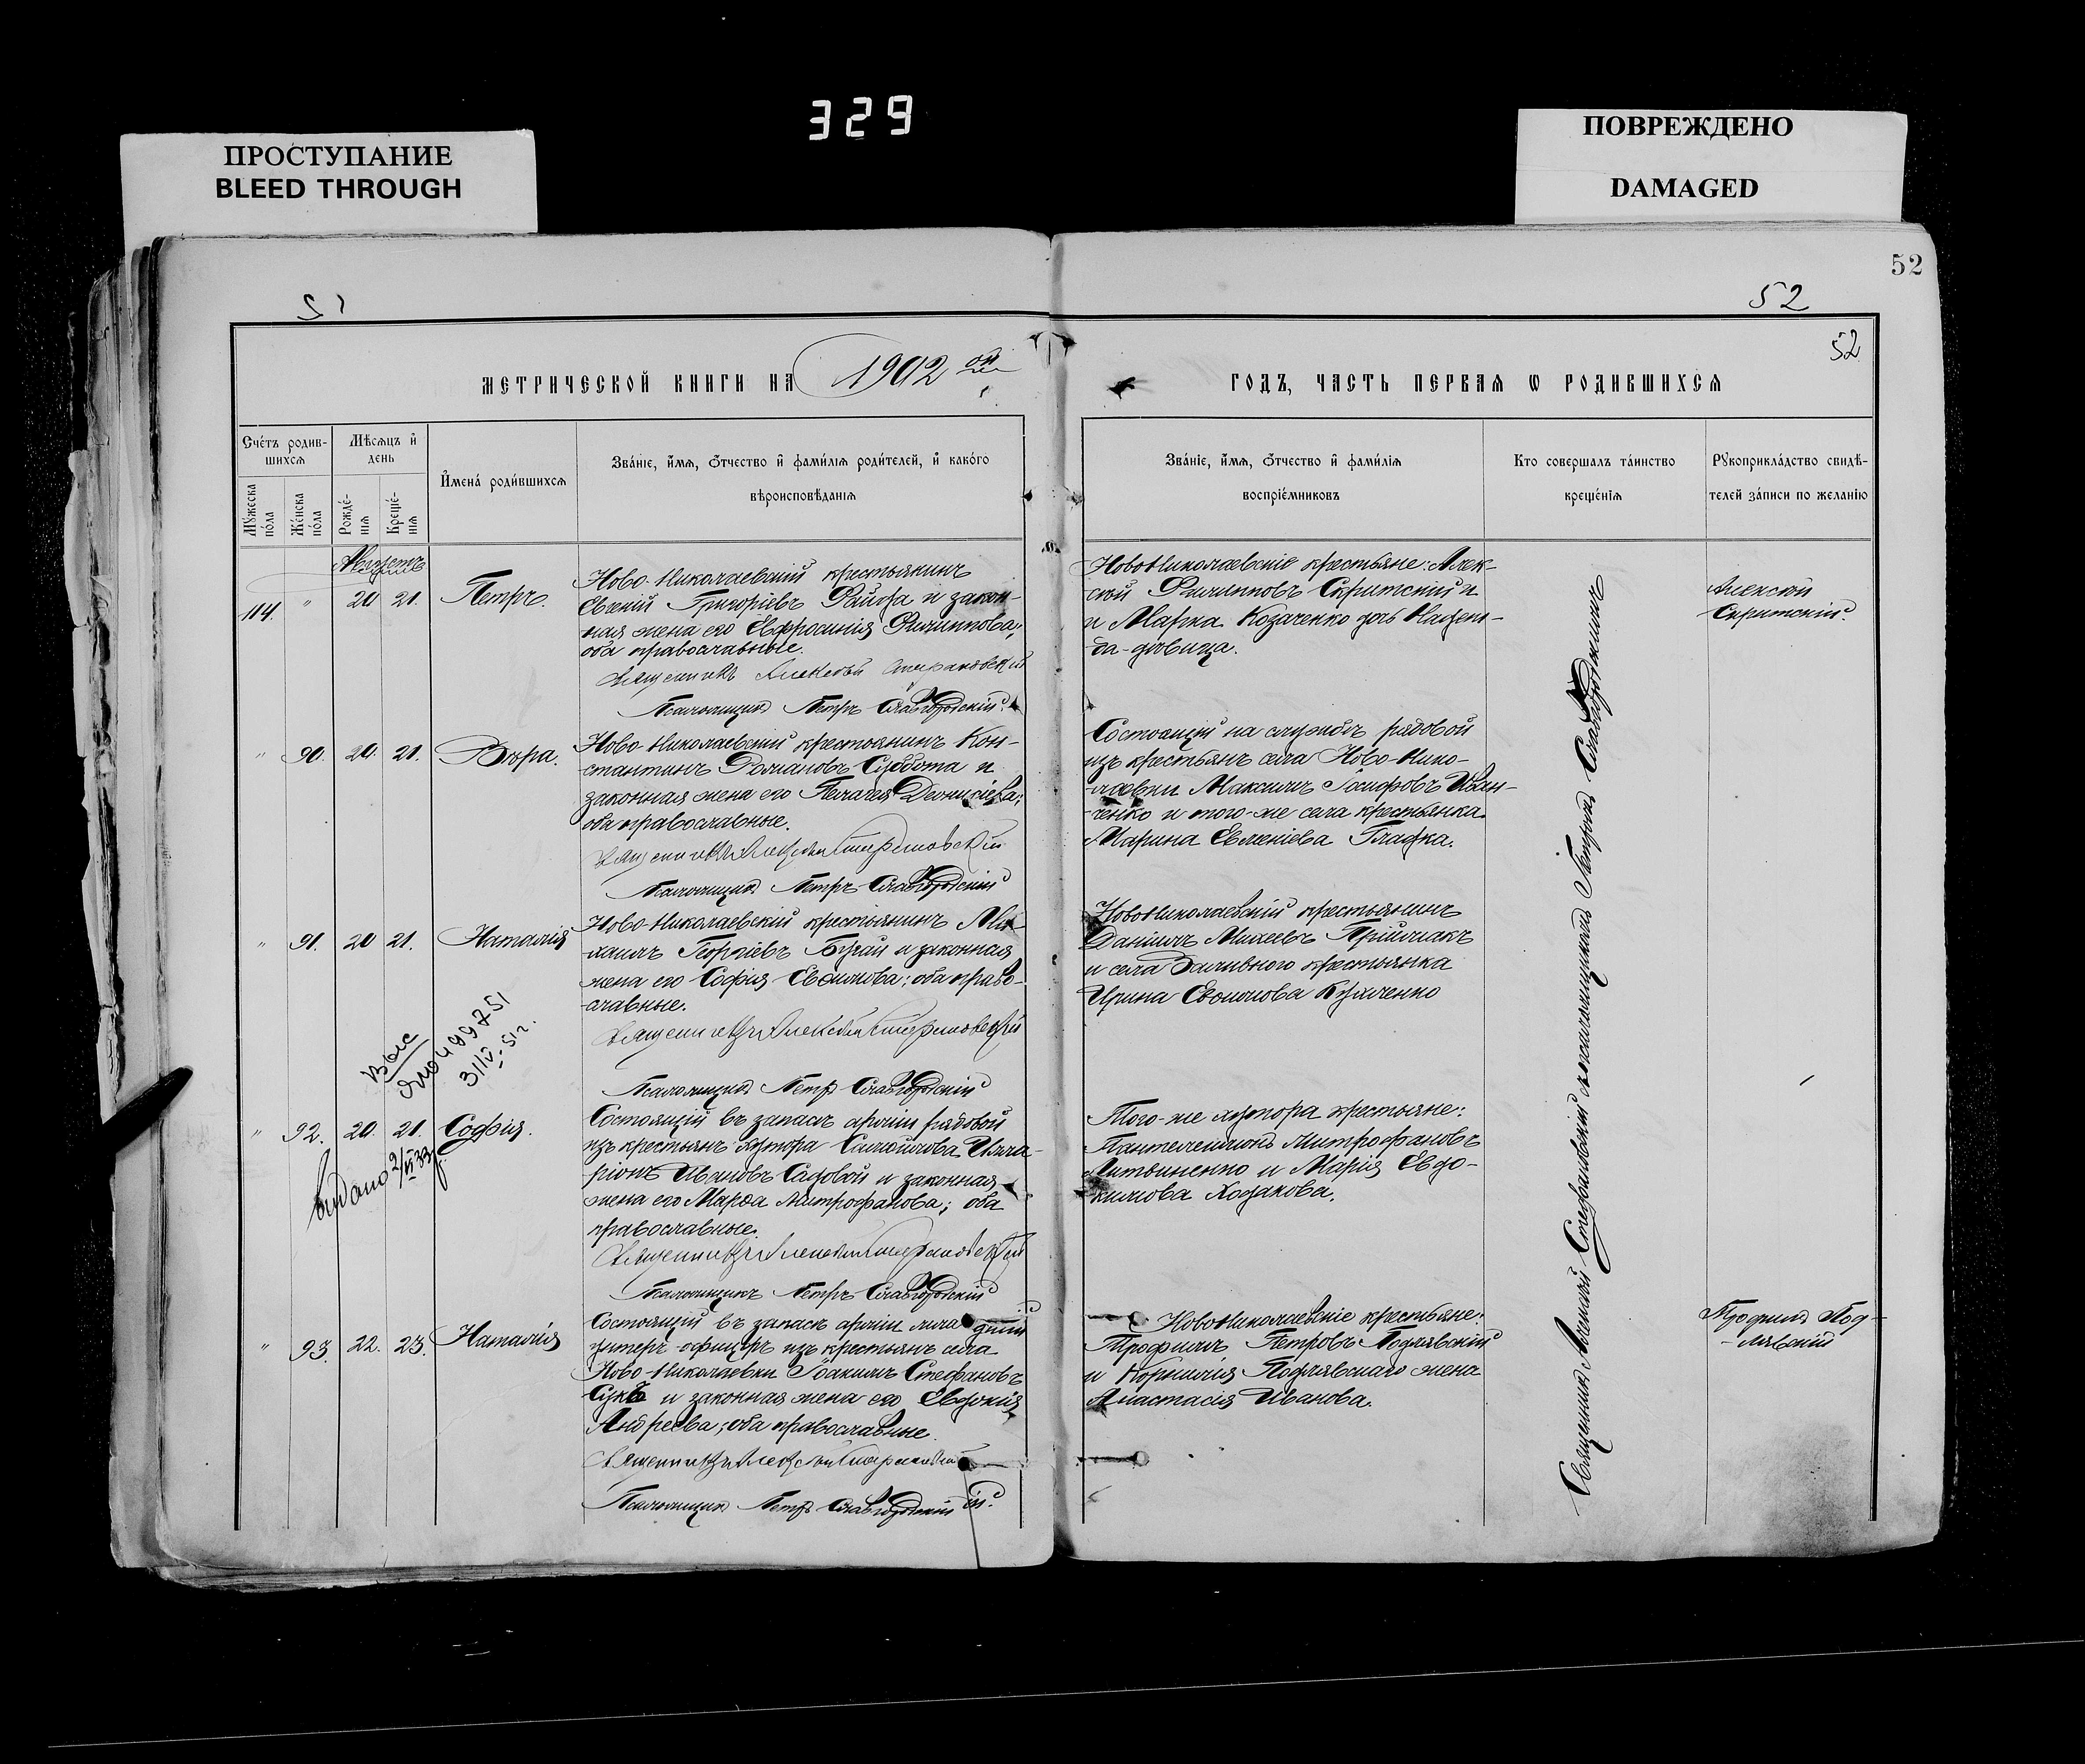 329
ПРОСТУПАНИЕ
BLEED THROUGH
ПОВРЕЖДЕНО
DAMAGED
52
51
52
52
МЕТРИЧЕСКОЙ КНИГИ НА 1902 ой
ГОДЪ, ЧАСТЬ ПЕРВАЯ Ѡ РОДИВШИХСЯ
Счетъ родив-
шихся
Мужеска
пола
Женска
пола
Мѣсяцъ и
день
Рожде-
нія
Креще-
нія
Имена родившихся
Званіе, имя, отчество и фамилія родителей, и какого
вѣроисповѣданія
Званіе, имя, отчество и фамилія
воспріемниковъ
Кто совершалъ таинство
крещенія
Рукоприкладство свидѣ-
телей записи по желанію
Августъ
114. " 20 21. Петръ.
Ново-Николаевскій крестьянинъ
Евгеній Григоріевъ и закон-
ная жена его Евфросинія Филиппова;
оба православные.
Священникъ Алексѣй Стефановскій
Псаломщикъ Петръ Славгородскій
НовоНиколаевскіе крестьяне: Алек-
сѣй Филипповъ Скритскій и
и Марка Козаченко дочь Надеж-
да-дѣвица.
Алексѣй
Скритскій.
" 90. 20 21. Вѣра.
Ново-Николаевскій крестьянинъ Кон-
стантинъ Романовъ Субота и
законная жена его Пелагея Діонисіева;
оба православные.
Священникъ Алексѣй Стефановскій
Псаломщикъ Петръ Славгородскій
Состоящій на службѣ рядовой
изъ крестьянъ села Ново-Нико-
лаевки Максимъ Іосифовъ Иван-
ченко и того-же села крестьянка
Марина Евменіева Гладка.
" 91. 20 21. Наталія
Ново-Николаевскій крестьянинъ Ми-
хаилъ Георгіевъ Бугай и законная
жена его Софія Евѳимова; оба право-
славные.
Священникъ Алексѣй Стефановскій
Псаломщикъ Петръ Славгородскій
НовоНиколаевскій крестьянинъ
Даніилъ Михеевъ Пріймакъ
и села Заливного крестьянка
Ирина Евѳимова Кузменко
" 92. 20. 21. Софія.
Состоящій въ запасѣ арміи рядовой
изъ крестьянъ хутора Самойлова Илла-
ріонъ Ивановъ Садовой и законная
жена его Марѳа Митрофанова; оба
православные.
Священникъ Алексѣй Стефановскій
Псаломщикъ Петръ Славгородскій
Того-же хутора крестьяне:
Пантелеймонъ Митрофановъ
Литвиненко и Марія Евдо-
кимова Ходакова.
" 93. 22. 23. Наталія
Состоящій въ запасѣ арміи младшій
унтеръ-офицеръ изъ крестьянъ села
Ново-Николаевки Іоакимъ Стефановъ
и законная жена его Евдокія
Андреева; оба православные.
Священникъ Алексѣй Стефановскій
Псаломщикъ Петръ Славгородскій
НовоНиколаевскіе крестьяне:
Трофимъ Петровъ Подлявскій
и Корнилія Подлявскаго жена
Анастасія Иванова.
Трофимъ Под-
-лявскій
Священникъ Алексѣй Стефановскій съ псаломщикомъ Петромъ Славгородскимъ